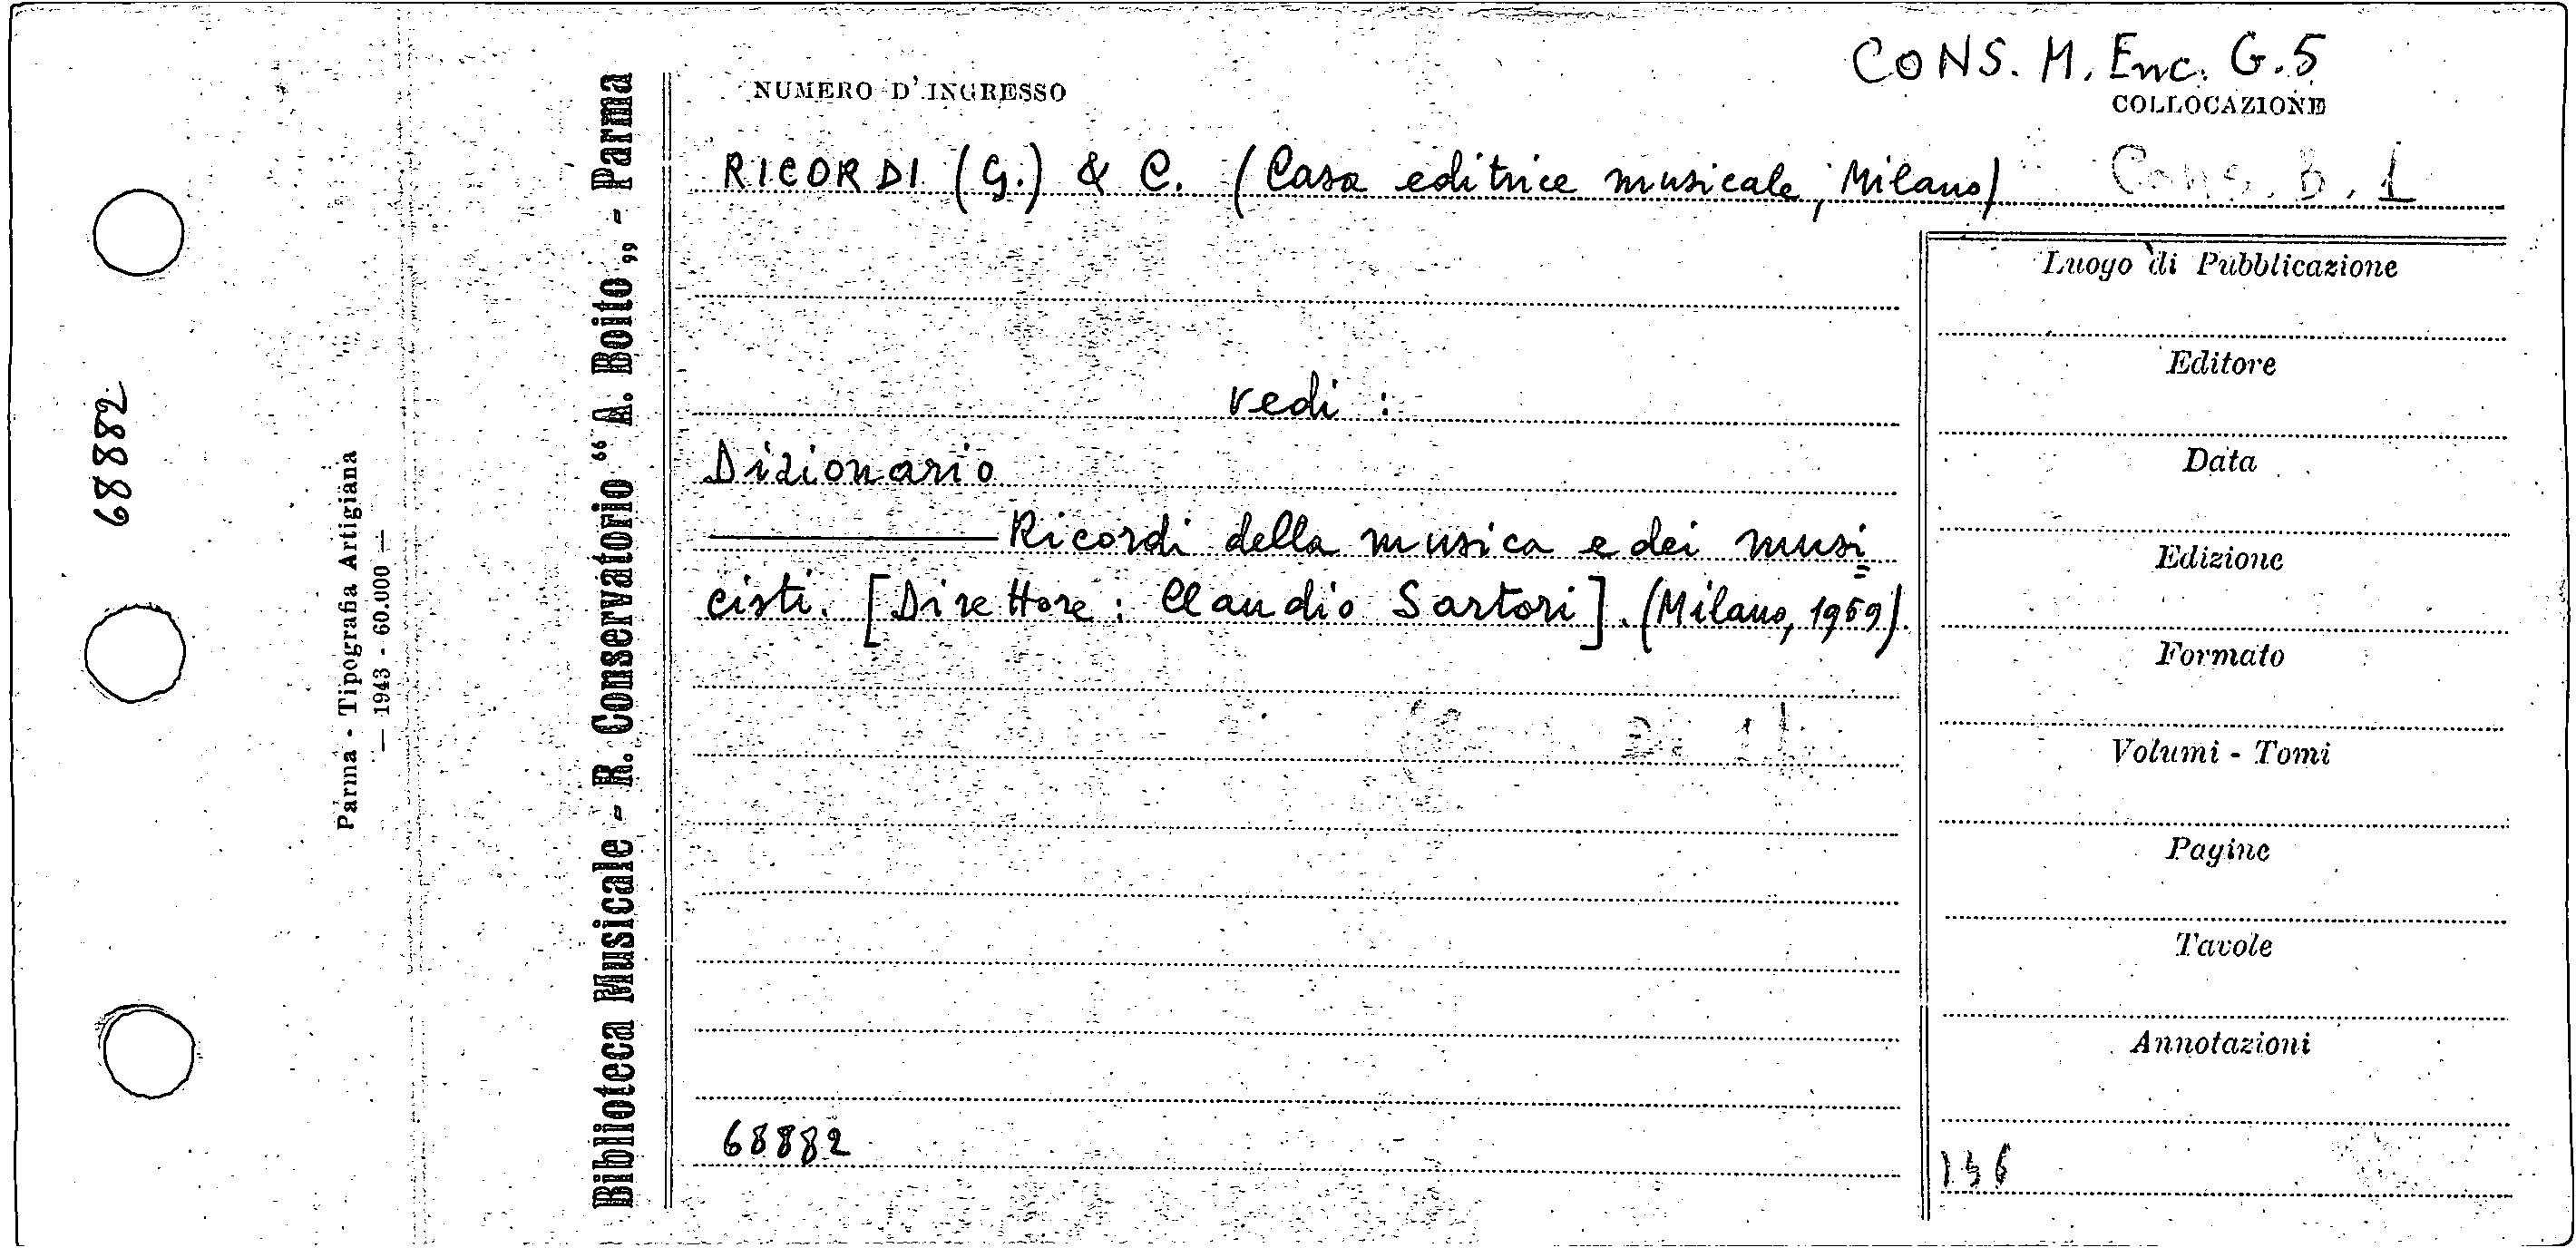 CONS. M. Enc. G.5
NUMERO D'INGRESSO
COLLOCAZIONE
RICORDI (G.) & C. (Casa editrice musicale, Milano)
Cons. B. 1
vedi :
Dizionario
——— Ricordi della musica e dei musi=
cisti. [Direttore: Claudio Sartori]. (Milano, 1959).
68882
Luogo di Pubblicazione
Editore
Data
Edizione
Formato
Volumi - Tomi
Pagine
Tavole
Annotazioni
Biblioteca Musicale - R. Conservatorio “ A. Boito „ - Parma
Parma - Tipografia Artigiana
— 1943 - 60.000 —
68882